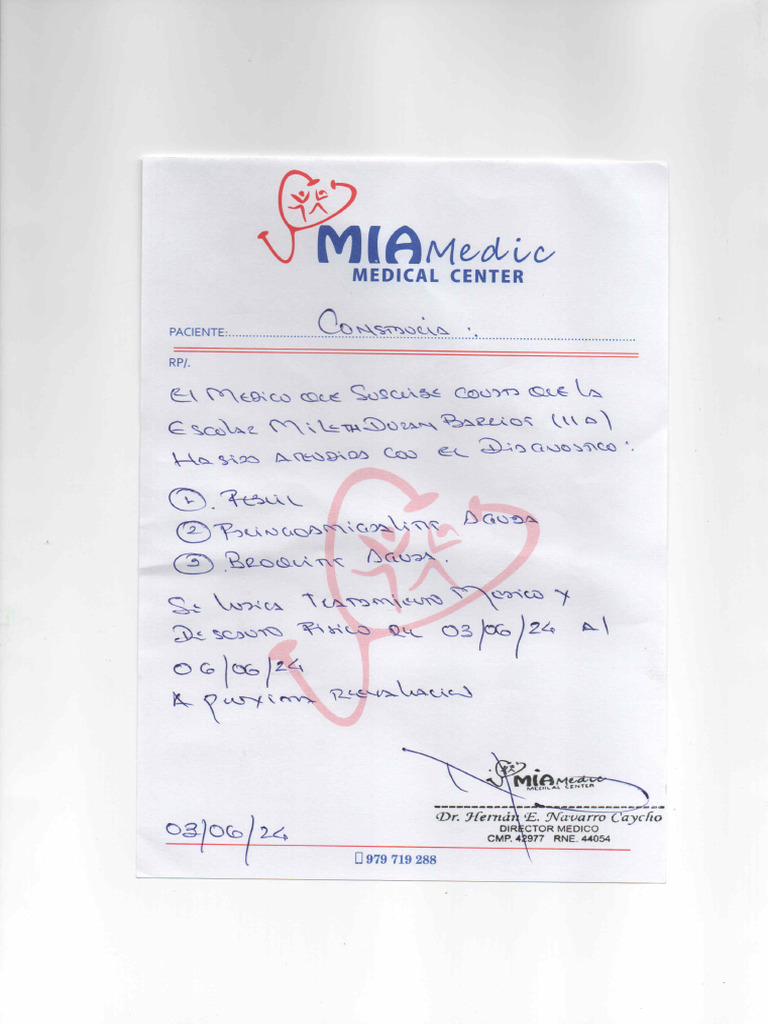 MIA Medic
MEDICAL CENTER
PACIENTE: Constancia :.
RP/.
El Medico que Suscribe consta que la
Escolar Mileth Duran Barrios (11 A)
Ha sido atendida con el Diagnostico :
①.
② Rinofaringoamigdalitis Aguda
③ Bronquitis Aguda.
Se indica Tratamiento Medico y
Descanso Fisico de 03/06/24 Al
06/06/24
A proxima reevaluacion
MIA Medic
MEDICAL CENTER
Dr. Hernán E. Navarro Caycho
DIRECTOR MEDICO
CMP. 42977 RNE. 44054
03/06/24
979 719 288